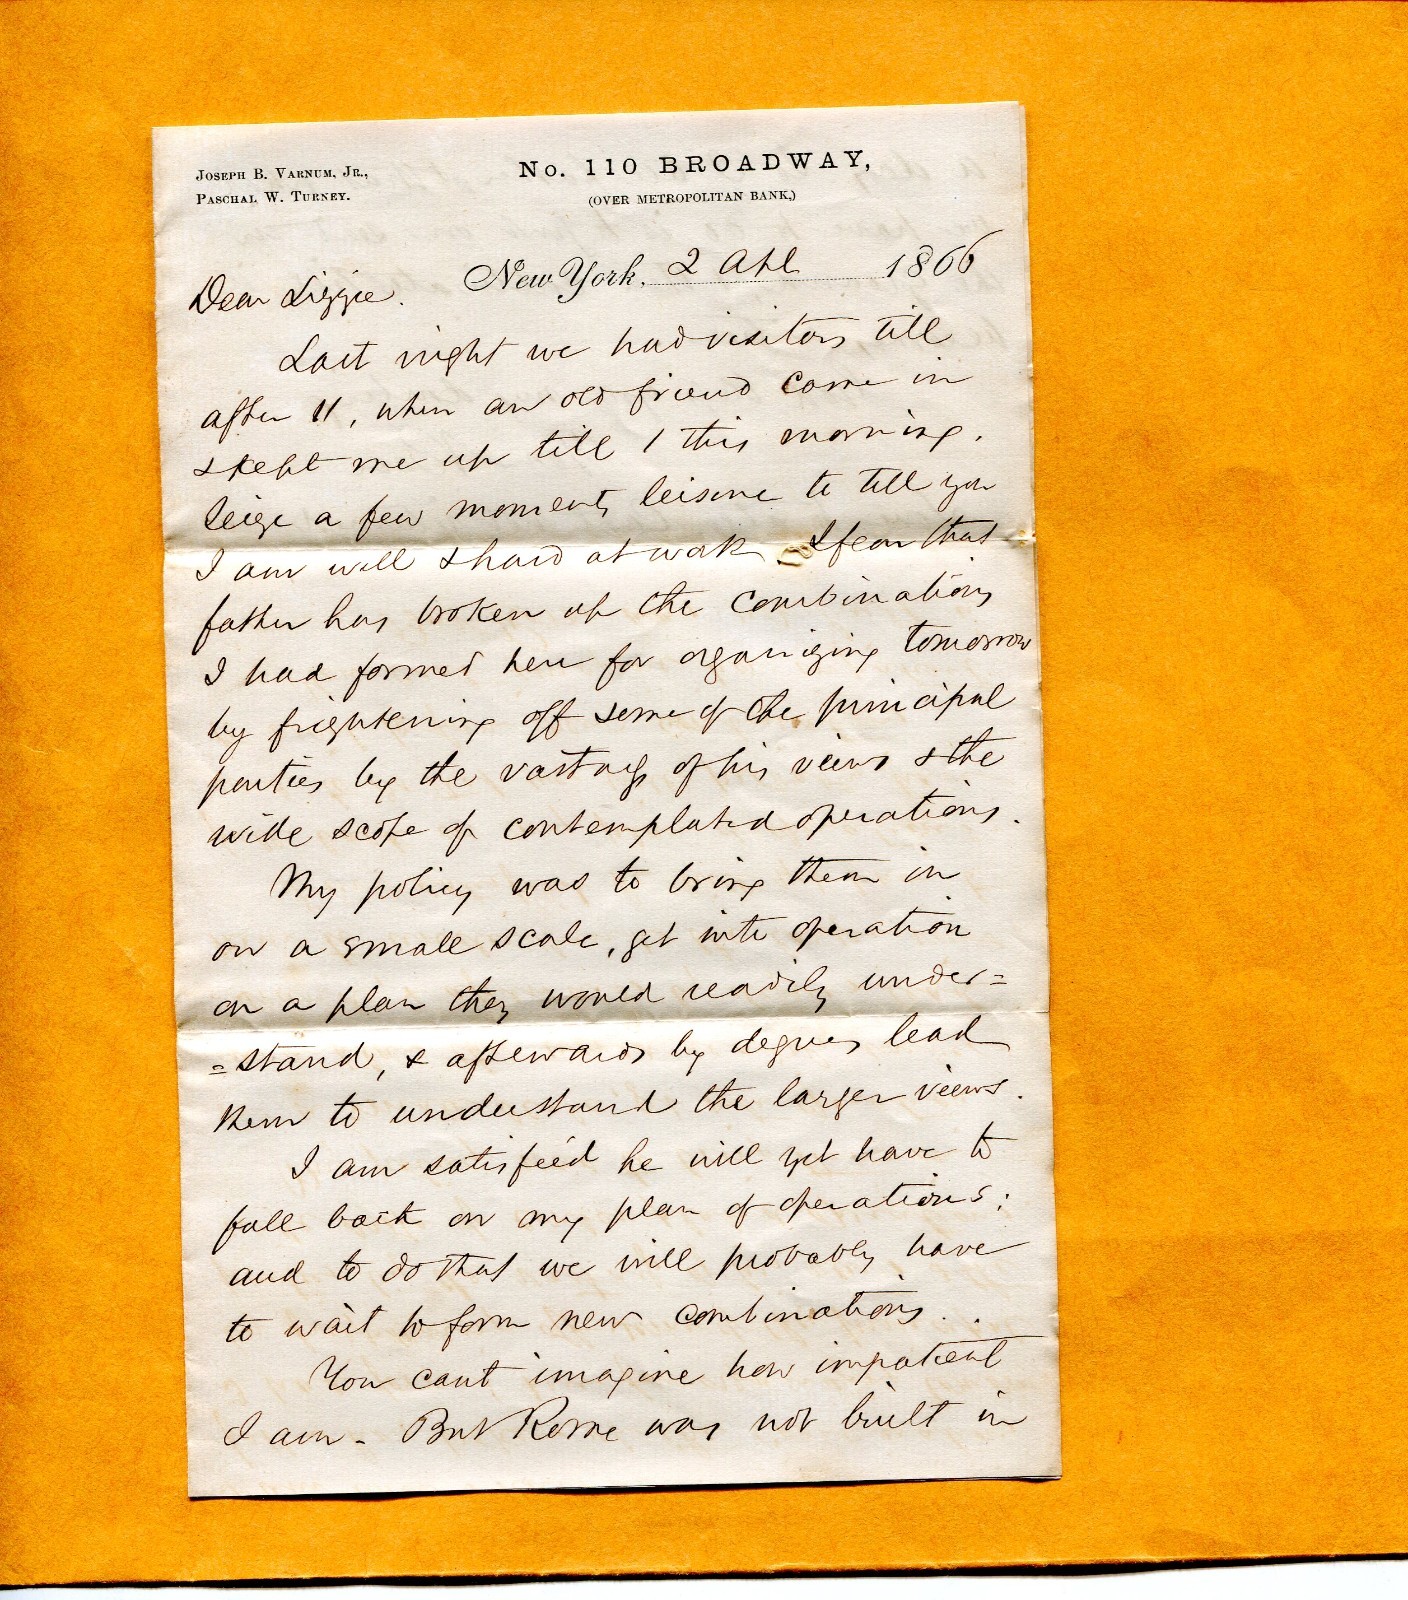 Joseph B. Varnum, Jr.,
Paschal W. Turney.
No. 110 BROADWAY,
(OVER METROPOLITAN BANK,)
New York, 2 Apl 1866
Dear Lizzie.
Last night we had visitors till
after 11, when an old friend came in
& kept me up till 1 this morning.
Seize a few moments leisure to tell you
I am well & hard at work. I fear that
father has broken up the combinations
I had formed here for organizing tomorrow
by frightening off some of the principal
parties by the vastness of his views & the
wide scope of contemplated operations.
My policy was to bring them in
on a small scale, get into operation
on a plan they would readily under=
=stand, & afterwards by degrees lead
them to understand the larger views.
I am satisfied he will yet have to
fall back on my plan of operations;
and to do that we will probably have
to wait to form new combinations.
You cant imagine how impatient
I am - But Rome was not built in